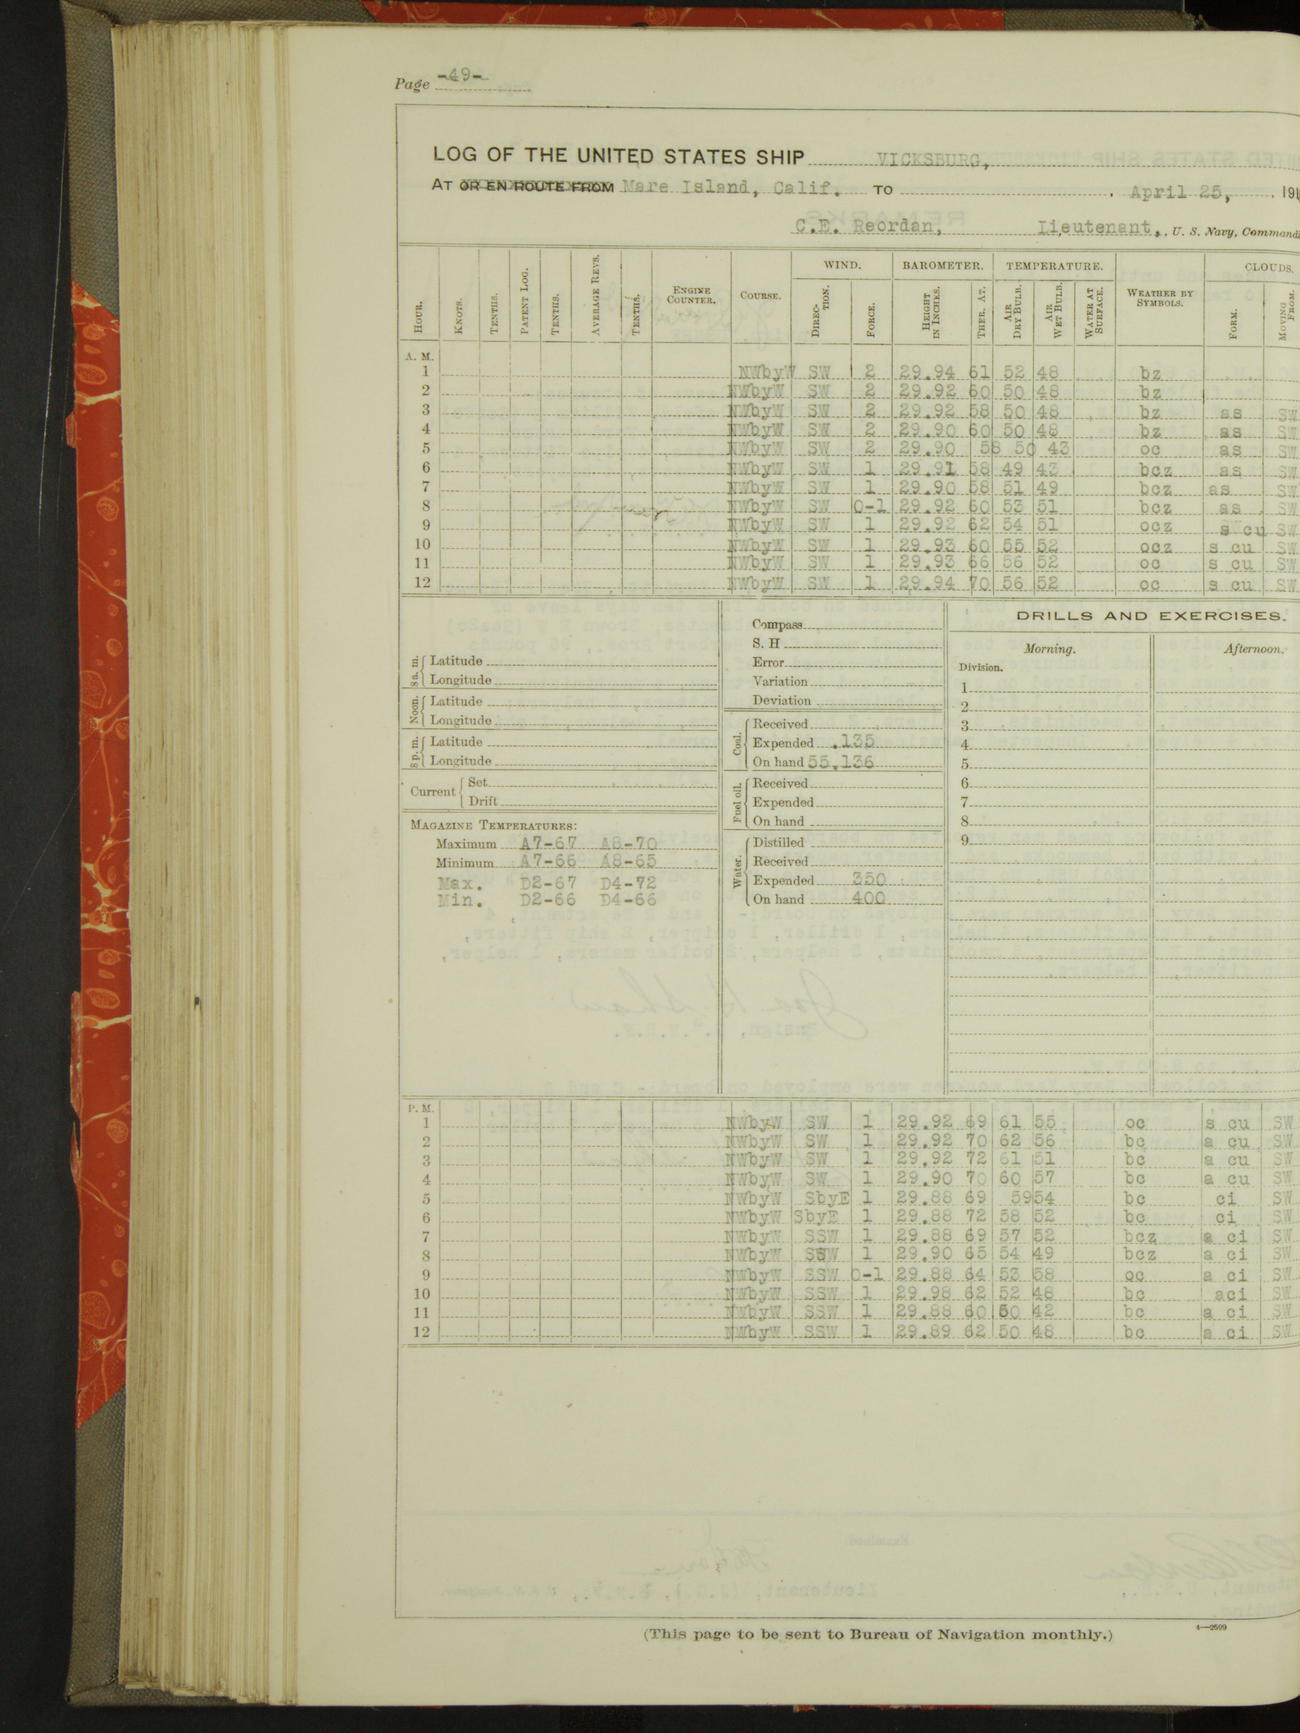 Page -49-
LOG OF THE UNITED STATES SHIP VICKSBURG,
AT OR EN ROUTE FROM Mare Island, Calif. TO , April 25, , 191
C.E. Reordan, Lieutenant, , U. S. Navy, Commandi
HOUR. KNOTS. TENTHS. PATENT LOG. TENTHS. AVERAGE REVS. TENTHS. ENGINE COUNTER. COURSE. WIND. DIRECTION. FORCE. BAROMETER. HEIGHT IN INCHES. THER. AT. TEMPERATURE. AIR DRY BULB. AIR WET BULB. WATER AT SURFACE. WEATHER BY SYMBOLS. CLOUDS. FORM. MOVING FROM.
A. M.
1 NWbyW SW 2 29.94 61 52 48 bz
2 NWbyW SW 2 29.92 60 50 48 bz
3 NWbyW SW 2 29.92 58 50 48 bz as SW
4 NWbyW SW 2 29.90 60 50 48 bz as SW
5 NWbyW SW 2 29.90 58 50 43 oc as SW
6 NWbyW SW 1 29.91 58 49 43 bcz as SW
7 NWbyW SW 1 29.90 58 51 49 bcz as SW
8 NWbyW SW 0-1 29.92 60 53 51 bcz as SW
9 NWbyW SW 1 29.92 62 54 51 ocz s cu SW
10 NWbyW SW 1 29.93 60 55 52 ocz s cu SW
11 NWbyW SW 1 29.93 66 56 52 oc s cu SW
12 NWbyW SW 1 29.94 70 56 52 oc s cu SW
8 a. m. Latitude
Longitude
Noon. Latitude
Longitude
8 p. m. Latitude
Longitude
Current Set
Drift
MAGAZINE TEMPERATURES:
Maximum A7-67 A8-70
Minimum A7-66 A8-65
Max. D2-67 D4-72
Min. D2-66 D4-66
Compass
S. H
Error
Variation
Deviation
Coal. Received
Expended .135
On hand 55.136
Fuel oil. Received
Expended
On hand
Water. Distilled
Received
Expended 350
On hand 400
DRILLS AND EXERCISES.
Morning. Afternoon.
Division.
1
2
3
4
5
6
7
8
9
P. M.
1 NWbyW SW 1 29.92 69 61 55 oc s cu SW
2 NWbyW SW 1 29.92 70 62 56 bc a cu SW
3 NWbyW SW 1 29.92 72 61 51 bc a cu SW
4 NWbyW SW 1 29.90 70 60 57 bc a cu SW
5 NWbyW SbyE 1 29.88 69 5954 bc ci SW
6 NWbyW SbyE 1 29.88 72 58 52 bc ci SW
7 NWbyW SSW 1 29.88 69 57 52 bcz a ci SW
8 NWbyW SSW 1 29.90 65 54 49 bcz a ci SW
9 NWbyW SSW 0-1 29.88 64 53 58 oc a ci SW
10 NWbyW SSW 1 29.98 62 52 48 bc aci SW
11 NWbyW SSW 1 29.88 60 50 42 bc a ci SW
12 NWbyW SSW 1 29.89 62 50 48 bc a ci SW
(This page to be sent to Bureau of Navigation monthly.)
4—2599